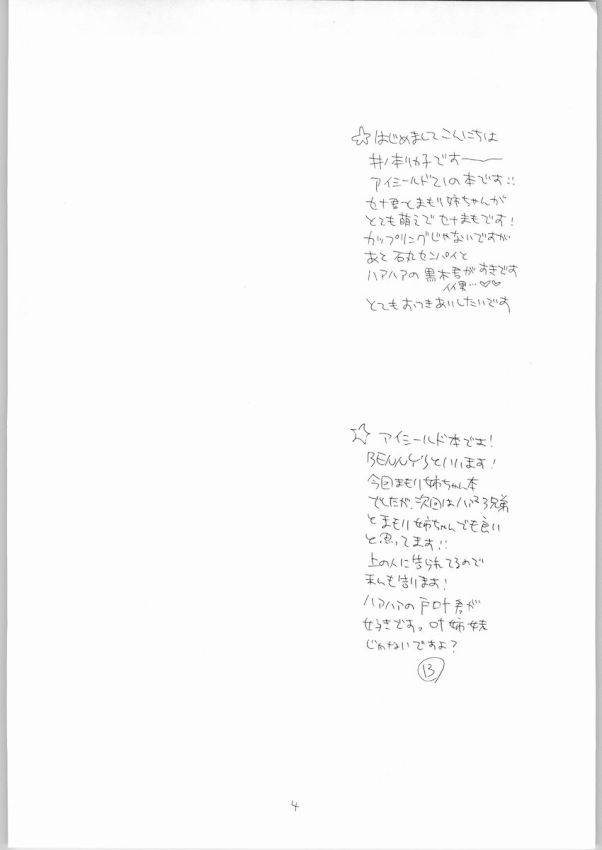 ☆はじめましてこんにちは
井ノ本リカ子です——
アイシールド21の本です!!
セナ君とまもり姉ちゃんが
とても萌えでセナまもです!
カップリングじゃないですが
あと 石丸センパイと
ハァハァの黒木君がすきです
イイ男…♡♡
とてもおつきあいしたいです
☆ アイシールド本です!
BENNY'Sといいます!
今回まもり姉ちゃん本
でしたが、次回はハァ×3兄弟
とまもり姉ちゃんでも良い
と思ってます!!
上の人に告られてるので
私も告ります!
ハァハァの戸叶君が
好きです。叶姉妹
じゃないですよ?
13
4